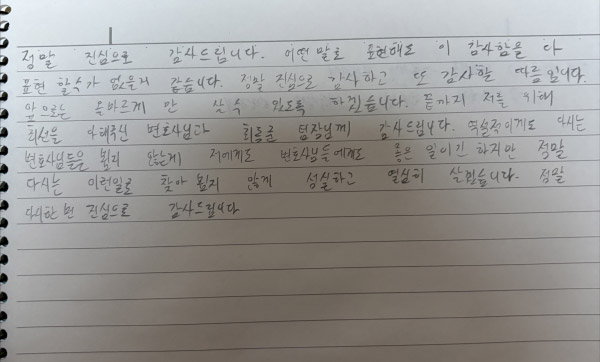 정말 진심으로 감사드립니다. 어떤 말로 표현해도 이 감사함을 다
표현 할수가 없을거 같습니다. 정말 진심으로 감사하고 또 감사할 따름입니다.
앞으로는 올바르게 만 살수 있도록 하겠습니다. 끝까지 저를 위해
최선을 다해주신 변호사님과 팀장님께 감사드립니다. 역설적이게도 다시는
변호사님들을 뵙지 않는게 저에게도 변호사님들에게도 좋은 일이긴 하지만 정말
다시는 이런일로 찾아 뵙지 않게 성실하고 열심히 살겠습니다. 정말
다시한 번 진심으로 감사드립니다